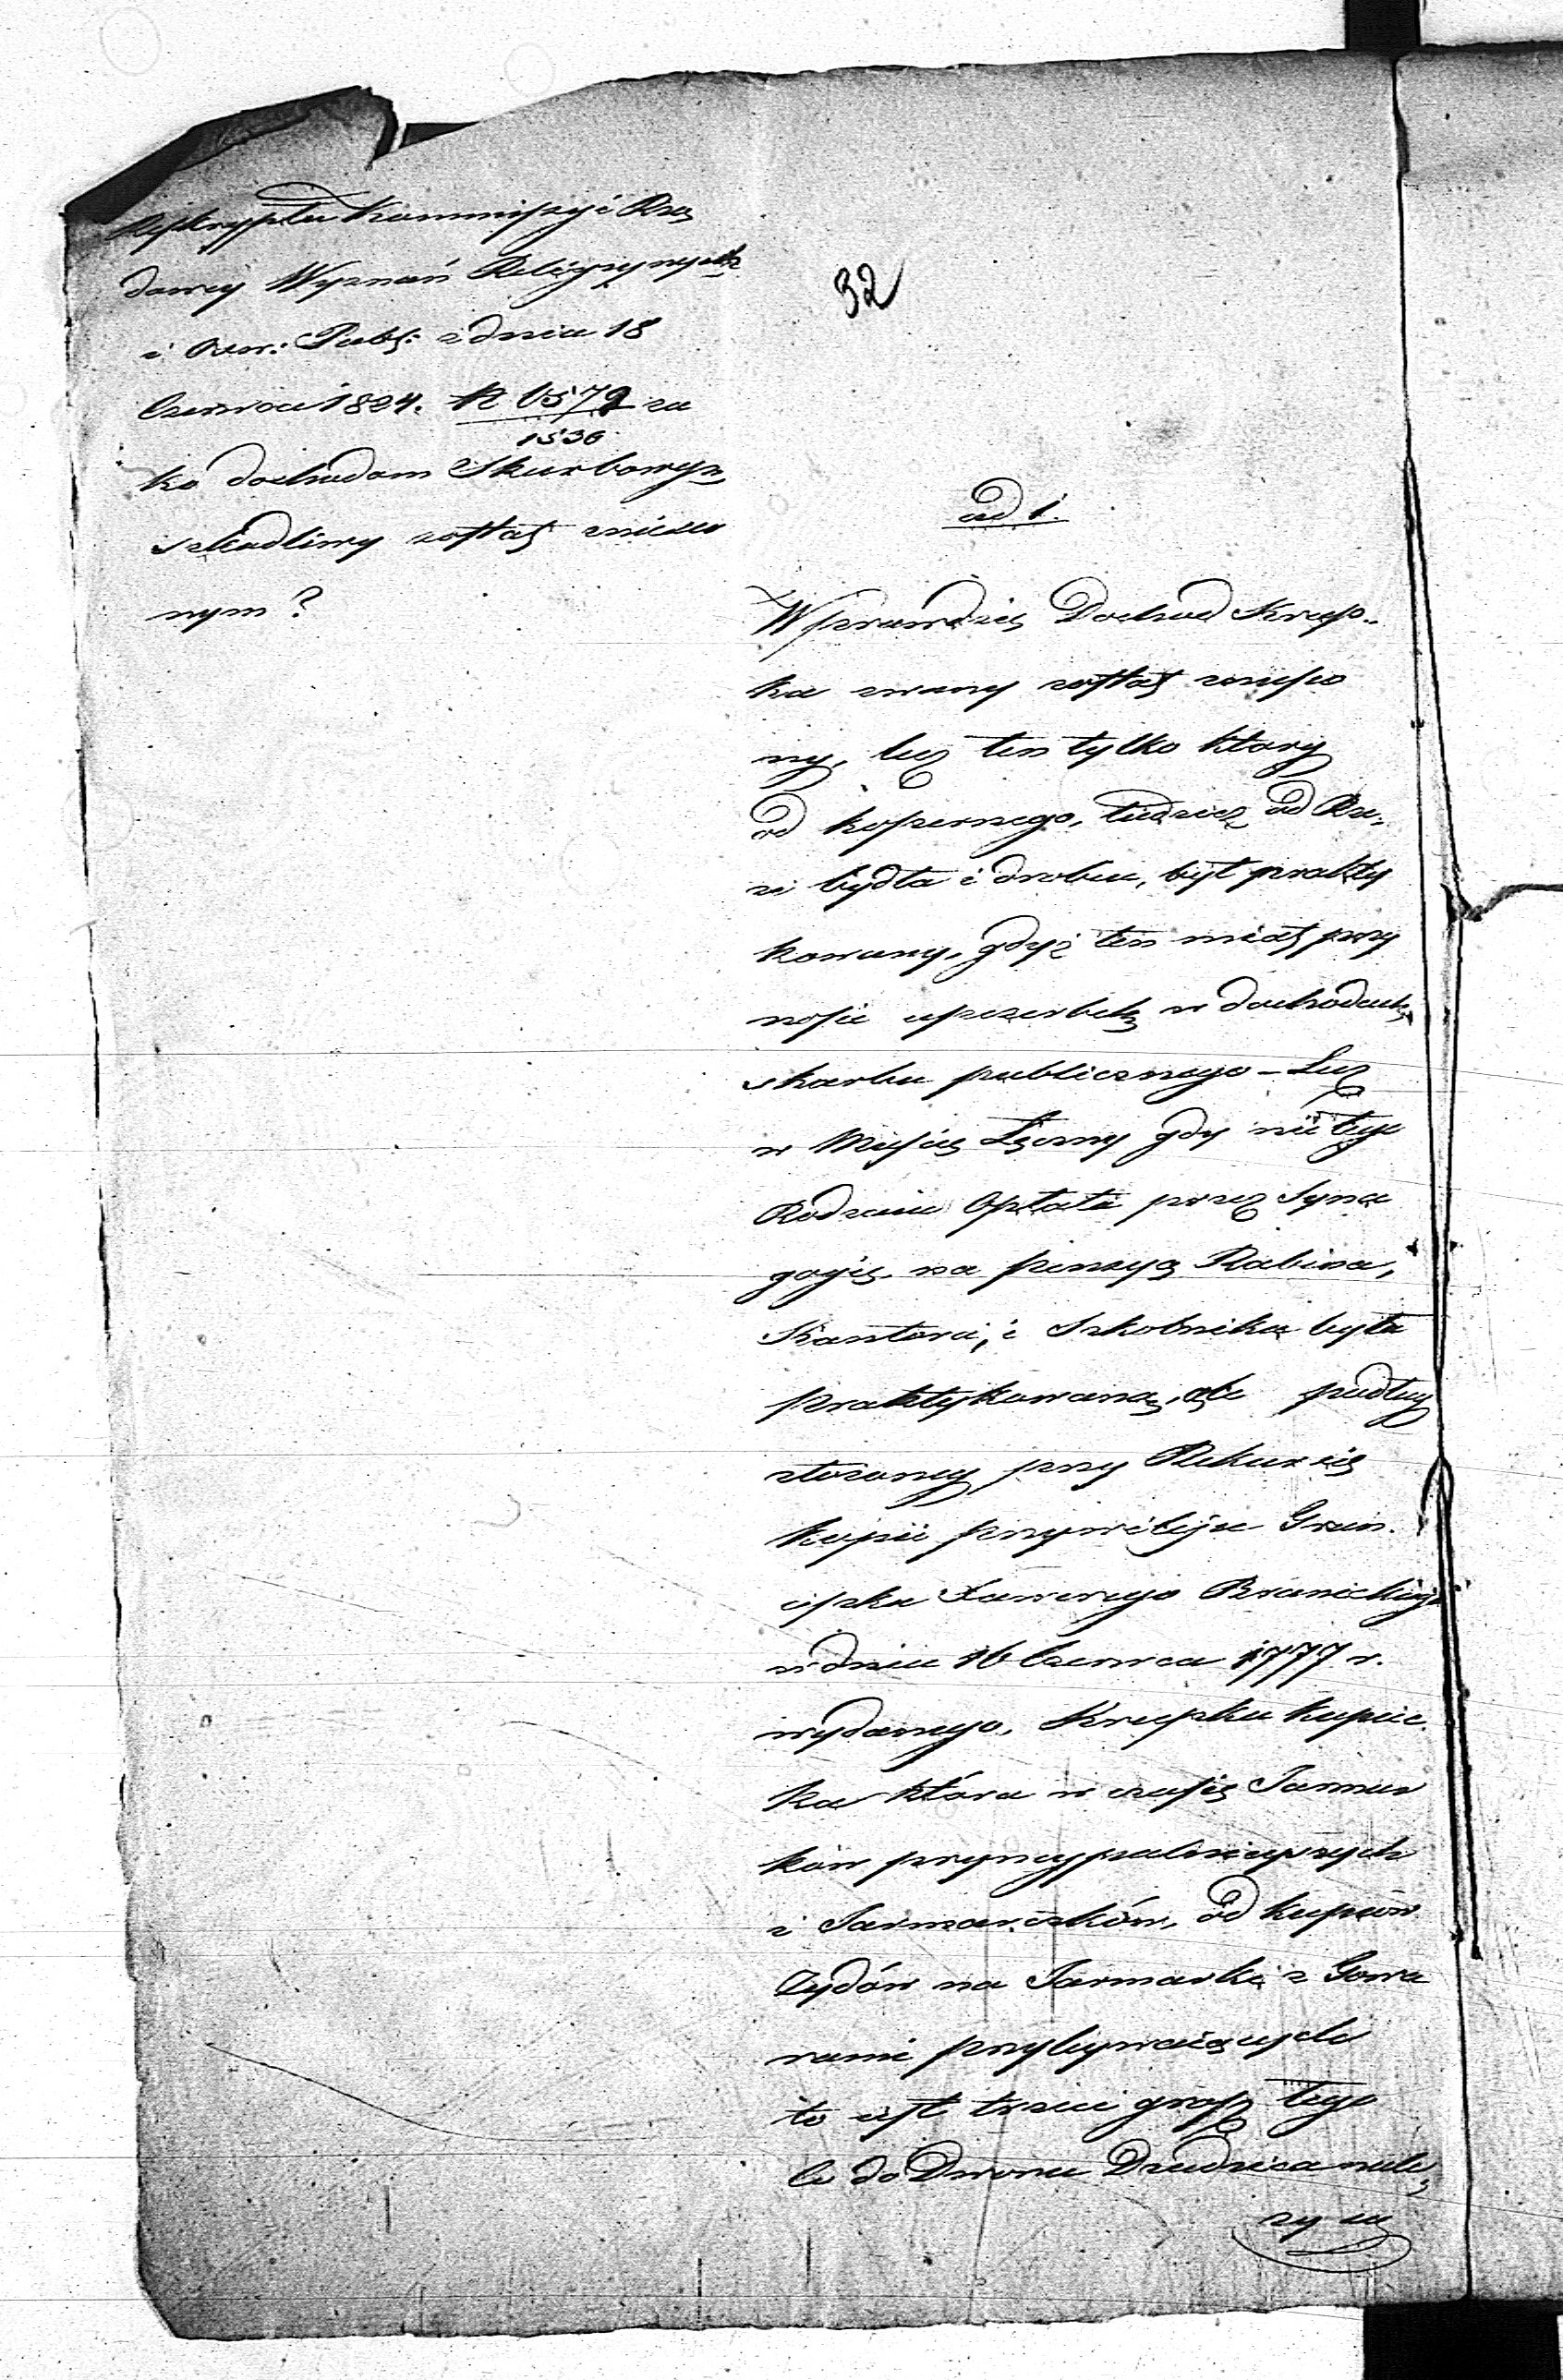 Reskryptu Kommissyi Rzą
dowey Wyznań Religiynych
i Ośw: Publ: z dnia 18
Czerwca 1824. N 6579/1536 ia
ko dochodom Skarbowym
szkodliwy został zniesio
nym?
32
ad 1.
Wprawdzie Dochod Krup-
ka zwany został zniesio
ny, lecz ten tylko który
od koszernego, tudzież od Rze-
zi bydła i drobiu, był prakty
kowany, gdyż ten miał przy
nosić uszczerbek w dochodach
skarbu publicznego – Lecz
w Mieście Łęczny gdy nie tego
Rodzaiu Opłata przez Syna
gogię na pensyą Rabina,
Kantora, i Szkolnika była
praktykowaną, ale podług
złożoney przy Rekursie
kopii przywileju Fran-
ciszka Xawerego Branickiego
w dniu 16 Czerwca 1777 r.
wydanego, Krupka kupiec
ka która w czasie Jarmar
ków pryncypalnieyszych
i Jarmarczków, od kupców
Żydów na Jarmarki z Towa
rami przybywaiących
to iest trzeci grosz tego
co do Dworu Dziedzica nale
zy się